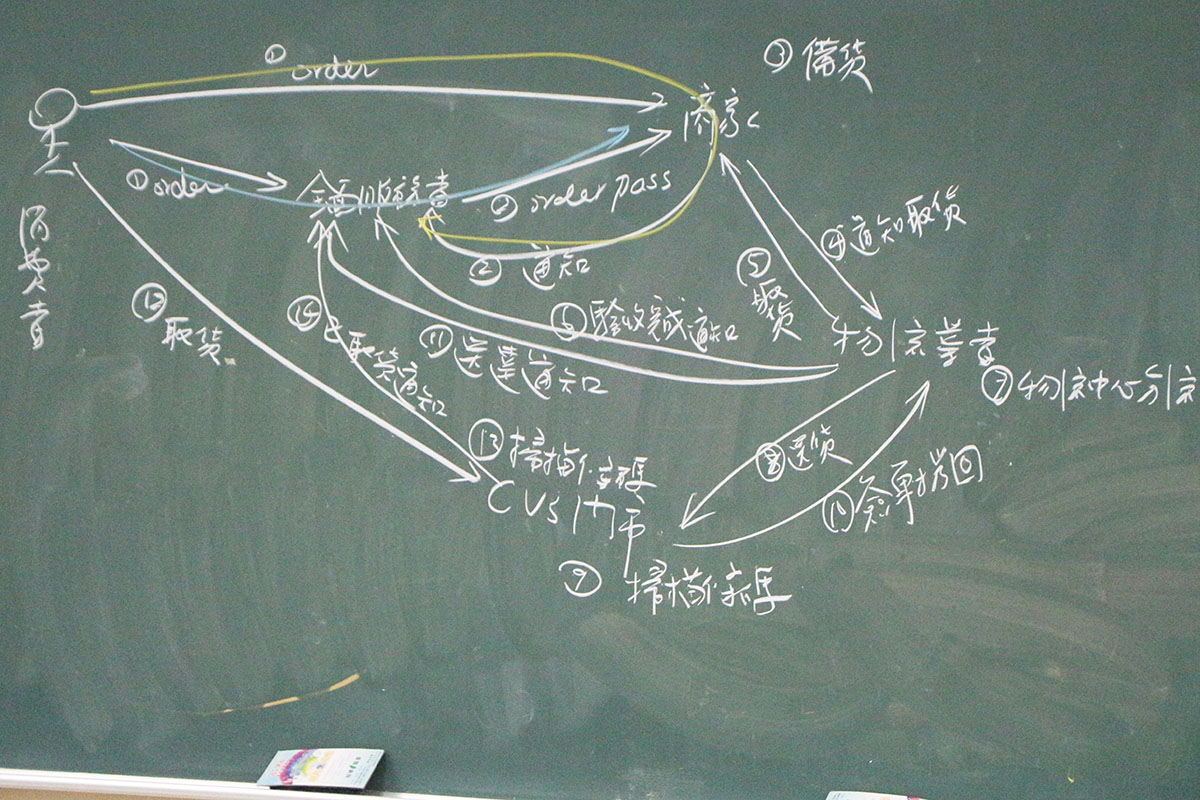 ① order
③ 備貨
商家
① order
② order pass
消費者
② 通知
④ 通知取貨
⑤ 取貨
⑥ 驗收完成通知
⑫ 取貨
⑭ 取貨通知
⑪ 送達通知
物流業者
⑦ 物流中心分流
⑧ 送貨
⑬ 掃描條碼
CVS門市
⑩ 簽單携回
⑨ 掃描條碼